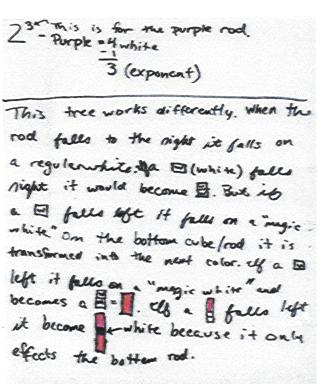 2³ - This is for the purple rod.
- Purple = 4 white
- 1
3 (exponent)
This tree works differently. When the
rod falls to the right it falls on
a regular white. If a (white) falls
right it would become . But if
a falls left it falls on a "magic
white" On the bottom cube/rod it is
transformed into the next color. If a
left it falls on a "magic white" and
becomes a = . If a falls left
it become ← white because it only
effects the bottom rod.